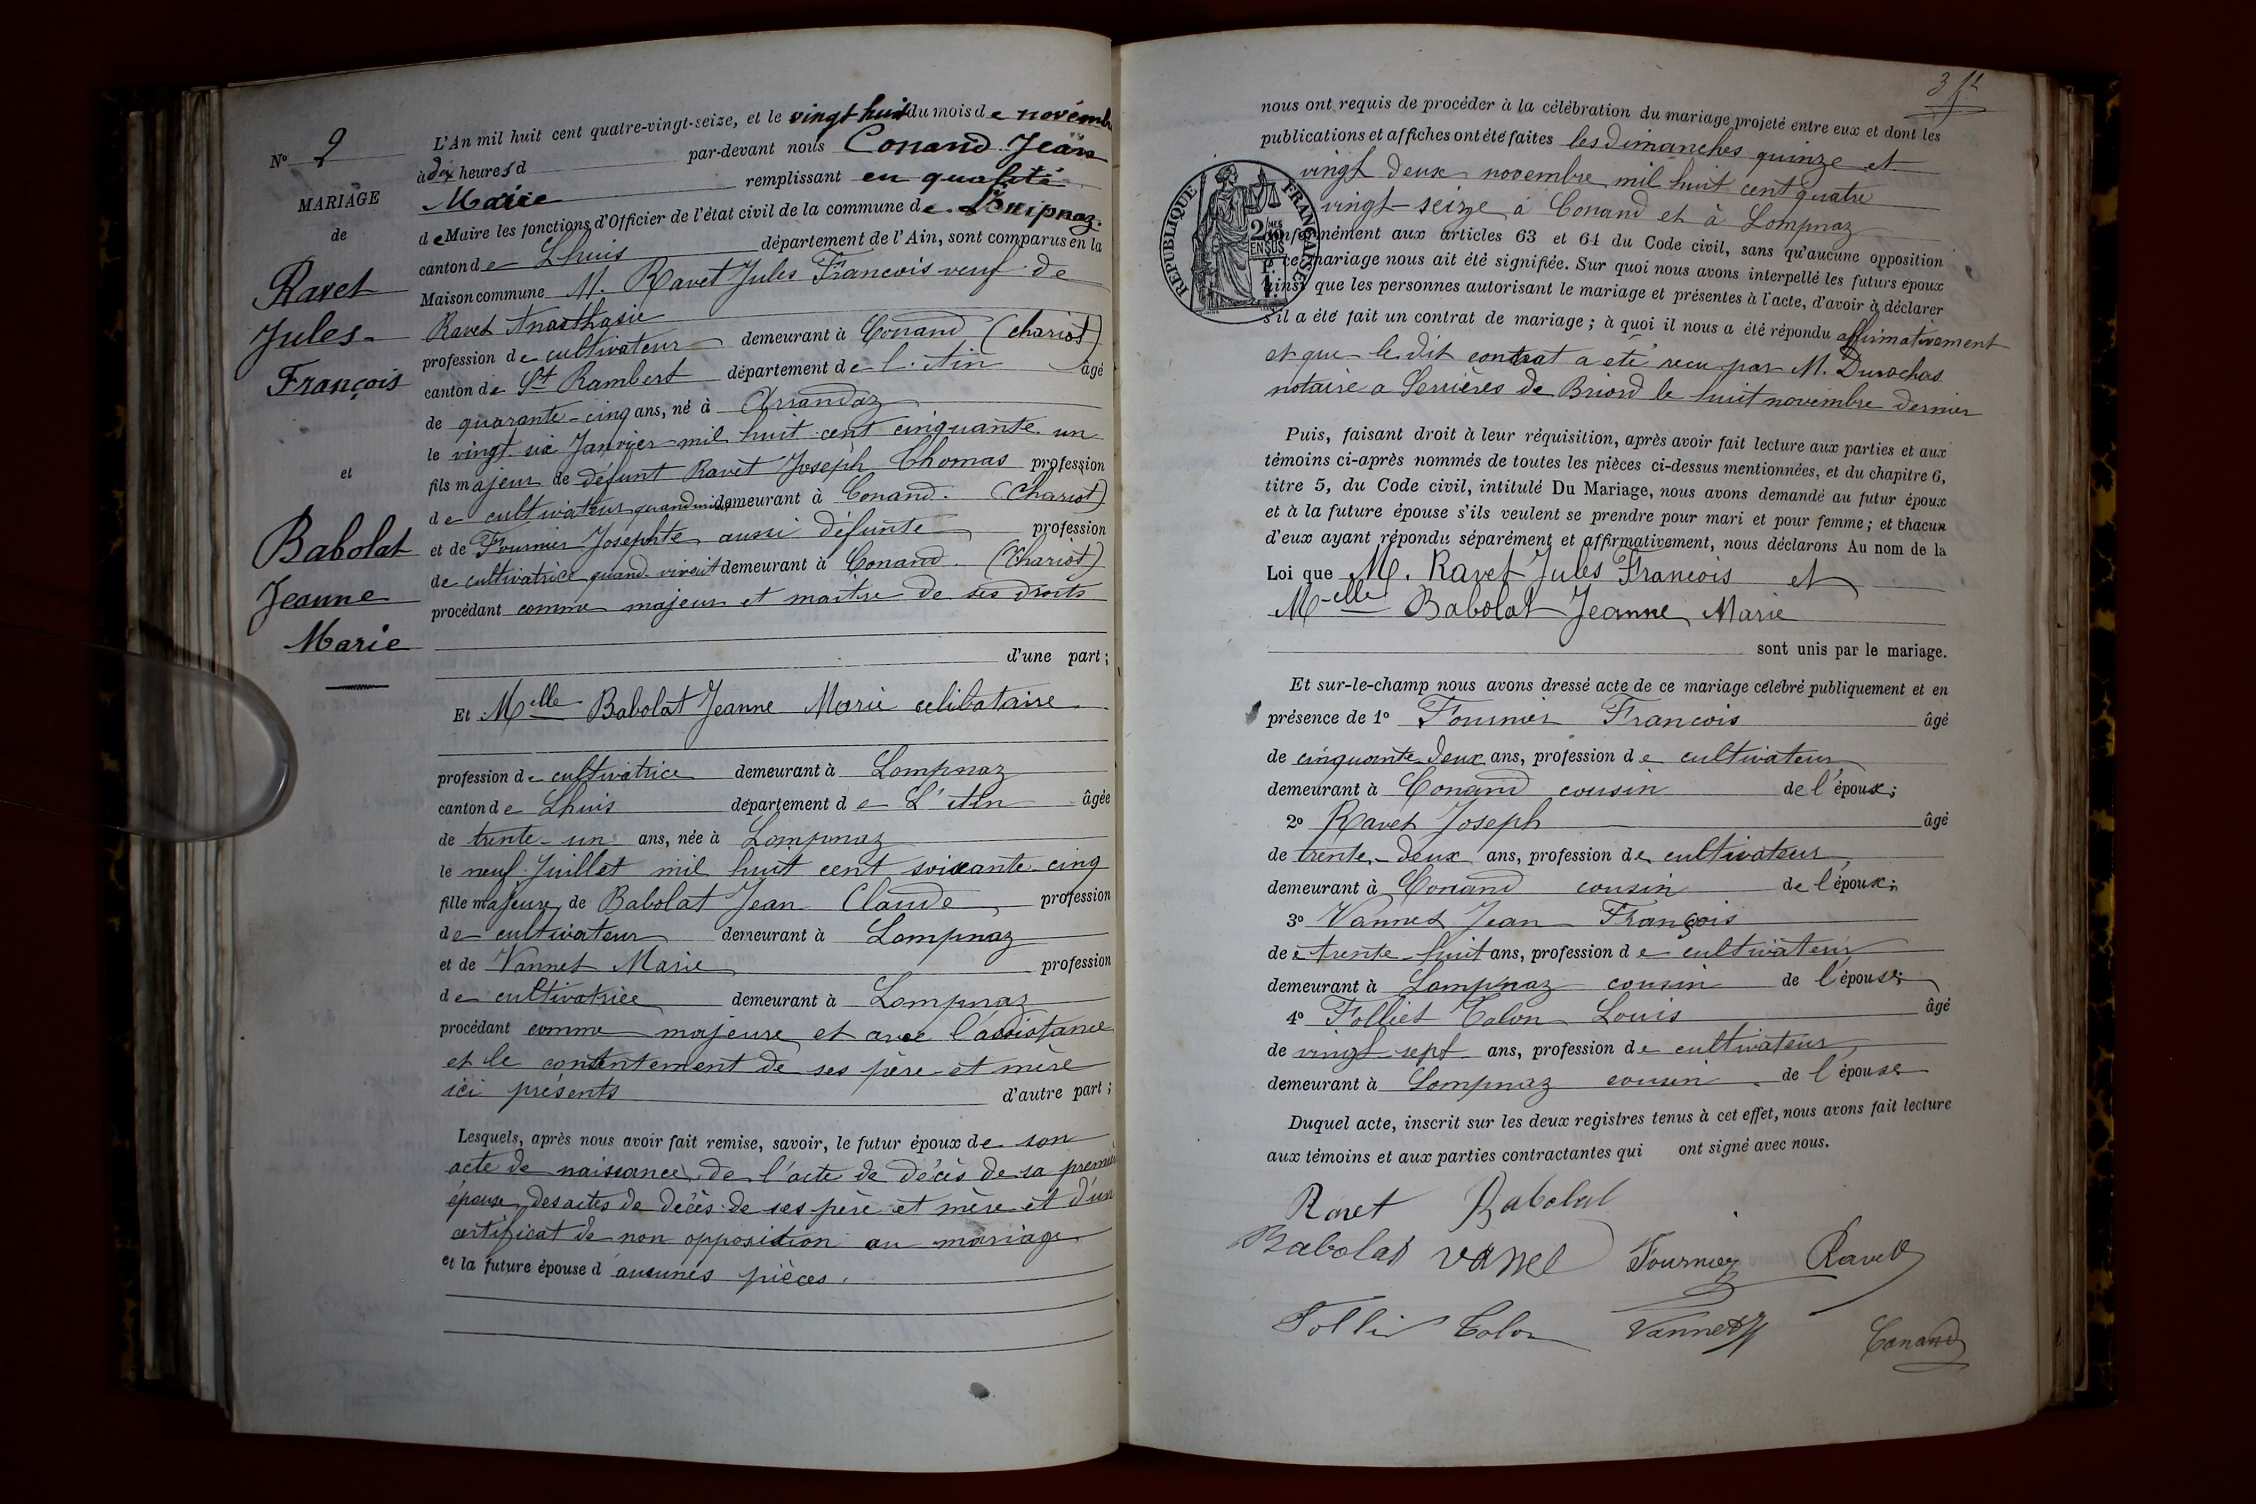 N° 2
MARIAGE
de
Ravet
Jules
François
et
Babolat
Jeanne
Marie
L'An mil huit cent quatre-vingt-seize, et le vingt huit du mois de novembre
à dix heures d par-devant nous Conand Jean
Marie remplissant en qualité
de Maire les fonctions d'Officier de l'état civil de la commune de
canton de Lhuis département de l'Ain, sont comparus en la
Maison commune M. Ravet Jules Francois veuf de
Ravet Anasthasie
profession de cultivateur demeurant à Conand (chariot)
canton de St Rambert département de l'Ain âgé
de quarante-cinq ans, né à Arrandaz
le vingt six Janvier mil huit cent cinquante un
fils majeur de défunt Ravet Joseph Thomas profession
de cultivateur quand demeurant à Conand. (Chariot)
et de Fournier Josephte aussi défunte profession
de cultivatrice quand vivait demeurant à Conand. (Chariot)
procédant comme majeur et maitre de ses droits
d'une part;
Et Melle Babolat Jeanne Marie celibataire
profession de cultivatrice demeurant à Lompnaz
canton de Lhuis département de L'Ain âgée
de trente-un ans, née à Lompnaz
le neuf Juillet mil huit cent soixante cinq
fille majeure de Babolat Jean Claude profession
de cultivateur demeurant à Lompnaz
et de Vannet Marie profession
de cultivatrice demeurant à Lompnaz
procédant comme majeure et avec l'assistance
et le consentement de ses père et mère
ici présents d'autre part;
Lesquels, après nous avoir fait remise, savoir, le futur époux de son
acte de naissance, de l'acte de décès de sa première
épouse, des actes de décès de ses père et mère et d'un
certificat de non opposition au mariage
et la future épouse d'aucunes pièces.
nous ont requis de procéder à la célébration du mariage projeté entre eux et dont les
publications et affiches ont été faites les dimanches quinze et
vingt deux novembre mil huit cent quatre
vingt-seize à Conand et à Lompnaz
REPUBLIQUE FRANÇAISE
conformément aux articles 63 et 64 du Code civil, sans qu'aucune opposition
à ce mariage nous ait été signifiée. Sur quoi nous avons interpellé les futurs époux
ainsi que les personnes autorisant le mariage et présentes à l'acte, d'avoir à déclarer
s'il a été fait un contrat de mariage; à quoi il nous a été répondu affirmativement
et que le dit contrat a été recu par M. Durochas
notaire a Serrières de Briord le huit novembre dernier
Puis, faisant droit à leur réquisition, après avoir fait lecture aux parties et aux
témoins ci-après nommés de toutes les pièces ci-dessus mentionnées, et du chapitre 6,
titre 5, du Code civil, intitulé Du Mariage, nous avons demandé au futur époux
et à la future épouse s'ils veulent se prendre pour mari et pour femme; et chacun
d'eux ayant répondu séparément et affirmativement, nous déclarons Au nom de la
Loi que M. Ravet Jules Francois et
Melle Babolat Jeanne Marie
sont unis par le mariage.
Et sur-le-champ nous avons dressé acte de ce mariage célébré publiquement et en
présence de 1° Fournier Francois âgé
de cinquante-deux ans, profession de cultivateur
demeurant à Conand cousin de l'époux;
2° Ravet Joseph âgé
de trente-deux ans, profession de cultivateur
demeurant à Conand cousin de l'époux;
3° Vannet Jean François
de trente-huit ans, profession de cultivateur
demeurant à Lompnaz cousin de l'épouse;
4° Folliet Colon Louis âgé
de vingt-sept ans, profession de cultivateur
demeurant à Lompnaz cousin de l'épouse
Duquel acte, inscrit sur les deux registres tenus à cet effet, nous avons fait lecture
aux témoins et aux parties contractantes qui ont signé avec nous.
Ravet Babolat
Babolat vanel Fournier Ravet
Colon Vannet Conand